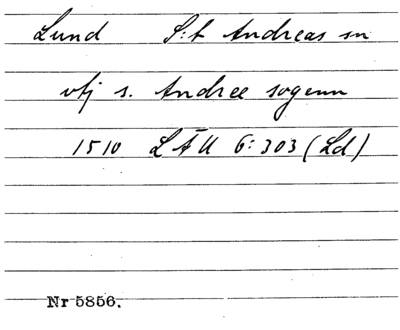 Lund S:t Andreas sn
vtj s. Andree sogenn
1510 LÄU 6:303 (Ld)
Nr 5856.